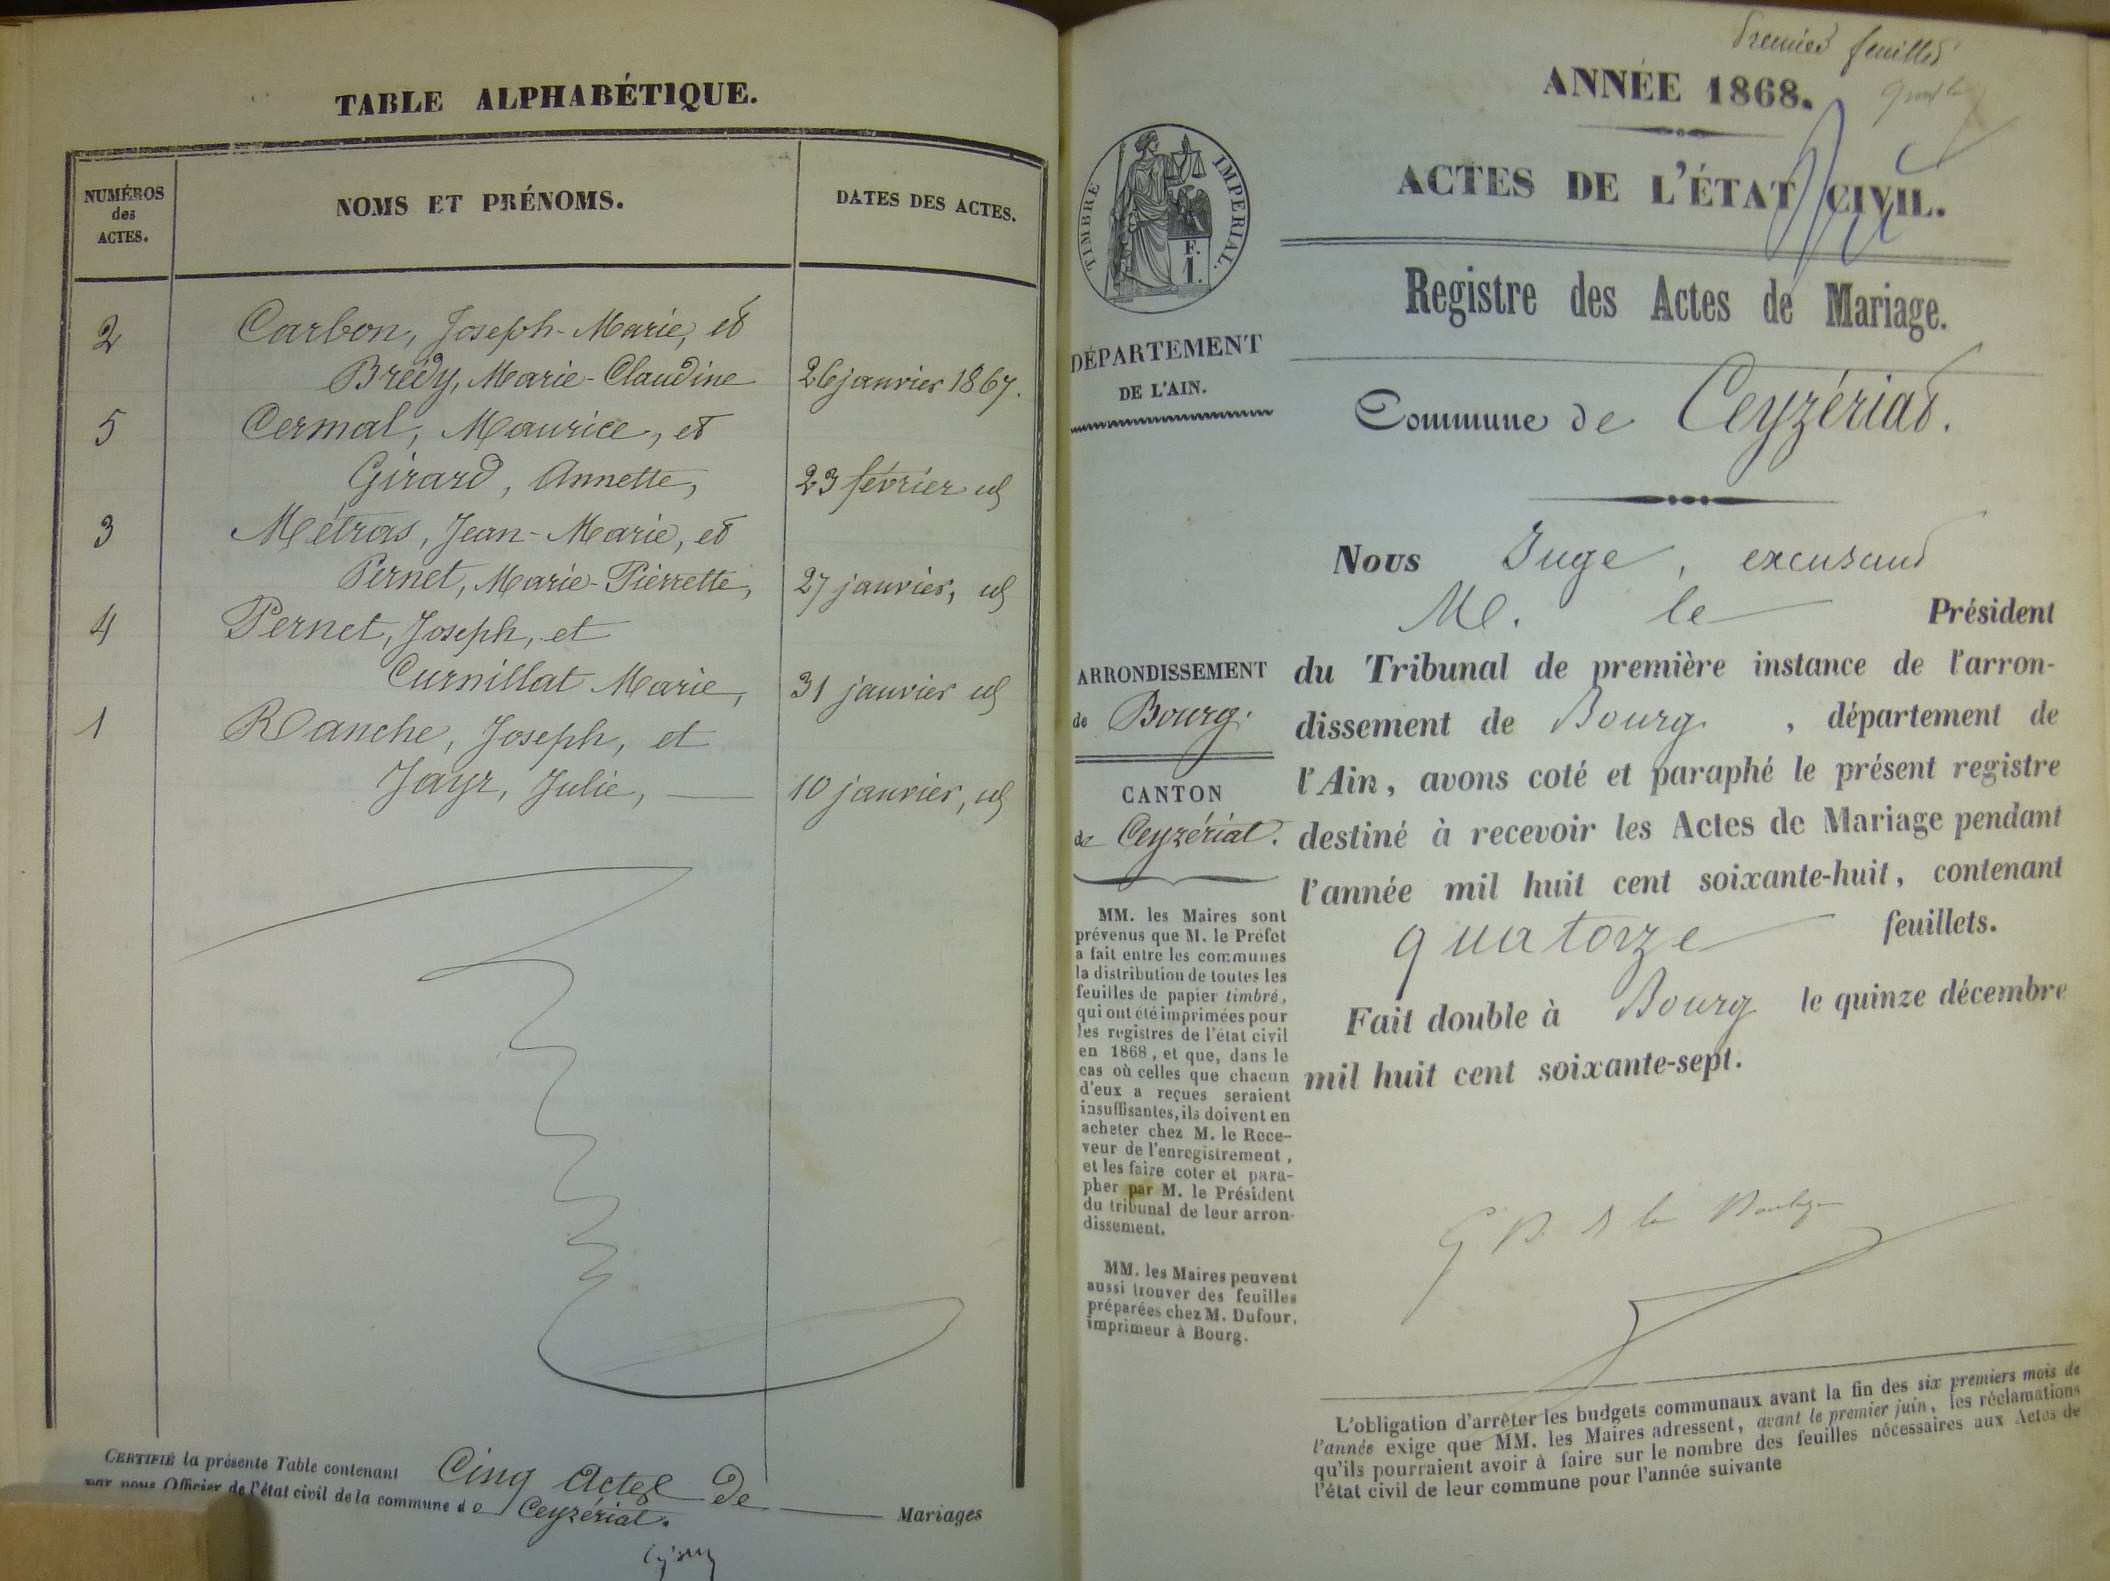 TABLE ALPHABÉTIQUE.
NUMÉROS
des
ACTES.
NOMS ET PRÉNOMS.
DATES DES ACTES.
2 Carbon, Joseph-Marie, et
Brédy, Marie-Claudine 26 janvier 1867.
5 Cermal, Maurice, et
Girard, Annette, 23 février id
3 Métras, Jean-Marie, et
Pernet, Marie-Pierrette, 27 janvier, id
4 Pernet, Joseph, et
Curnillat Marie, 31 janvier id
1 Ranche, Joseph, et
Jayr, Julie, 10 janvier, id
CERTIFIÉ la présente Table contenant Cinq Actes de Mariages
par nous Officier de l'état civil de la commune de Ceyzériat.
Premier feuillet
ANNÉE 1868.
ACTES DE L'ÉTAT CIVIL.
TIMBRE IMPERIAL.
F.
1.
Registre des Actes de Mariage.
DÉPARTEMENT
DE L'AIN.
Commune de Ceyzériat.
ARRONDISSEMENT
de Bourg.
CANTON
de Ceyzériat.
MM. les Maires sont
prévenus que M. le Préfet
a fait entre les communes
la distribution de toutes les
feuilles de papier timbré,
qui ont été imprimées pour
les registres de l'état civil
en 1868, et que, dans le
cas où celles que chacun
d'eux a reçues seraient
insuffisantes, ils doivent en
acheter chez M. le Rece-
veur de l'enregistrement,
et les faire coter et para-
pher par M. le Président
du tribunal de leur arron-
dissement.
MM. les Maires peuvent
aussi trouver des feuilles
préparées chez M. Dufour,
imprimeur à Bourg.
Nous Juge, excusant
M. le Président
du Tribunal de première instance de l'arron-
dissement de Bourg, département de
l'Ain, avons coté et paraphé le présent registre
destiné à recevoir les Actes de Mariage pendant
l'année mil huit cent soixante-huit, contenant
quatorze feuillets.
Fait double à Bourg le quinze décembre
mil huit cent soixante-sept.
L'obligation d'arrêter les budgets communaux avant la fin des six premiers mois de
l'année exige que MM. les Maires adressent, avant le premier juin, les réclamations
qu'ils pourraient avoir à faire sur le nombre des feuilles nécessaires aux Actes de
l'état civil de leur commune pour l'année suivante